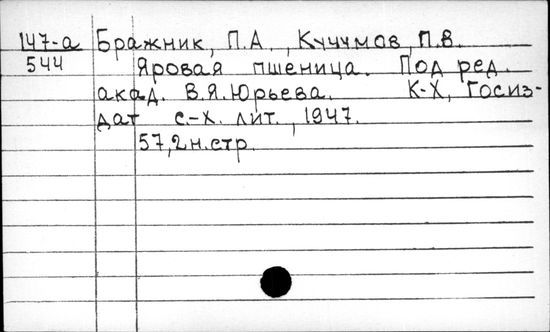 147-а Бражник, П.А., Кучумов, П.В.
544 Яровая пшеница. Под ред.
акад. В.Я.Юрьева. К-Х, Госиз-
дат с.-х. лит., 1947.
57,2н.стр.